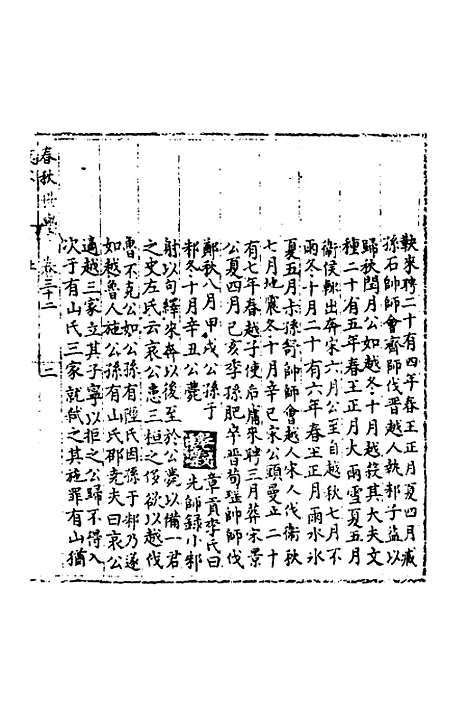 鞅來聘二十有四年春王正月夏四月臧
孫石帥師會齊師伐晉越人執邾子益以
歸秋閏月公如越冬十月越殺其大夫文
種二十有五年春王正月大雨雪夏五月
衞侯輒出奔宋六月公至自越秋七月不
雨冬十月二十有六年春王正月雨水冰
夏五月叔孫舒帥師會越人宋人伐衞秋
七月地震冬十月辛巳宋公頭曼卒二十
有七年春越子使后庸來聘三月葬宋景
公夏四月己亥季孫肥卒晉荀瑤帥師伐
鄭秋八月甲戌公孫于
邾冬十月辛丑公薨
章貢李氏曰
先師録小邾
射以句繹來奔以後至於公薨以備一君
之史左氏云哀公患三桓之侈欲以越伐
魯不克公如公孫有陘氏因孫于邾乃遂
如越魯人施公孫有山氏邵堯夫曰哀公
適越三家立其子寧以拒之公歸不得入
次于有山氏三家就弑之其施罪有山猶
春秋世學 卷三十二 三